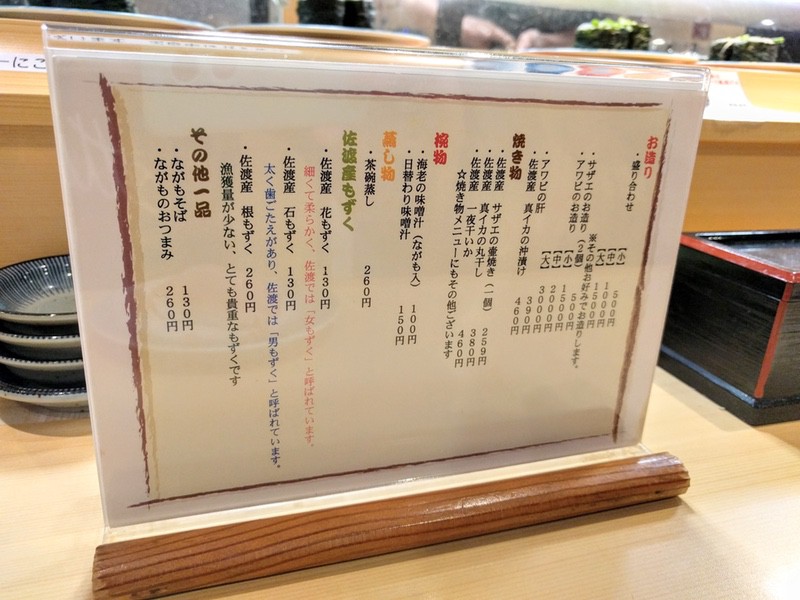 お造り
・盛り合わせ
【小】 500円
【中】 1000円
【大】 1500円
※その他お好みでお造りします。
・サザエのお造り(2個) 500円
・アワビのお造り
【小】 1500円
【中】 2000円
【大】 3000円
・アワビの肝 390円
・佐渡産 真イカの沖漬け 460円
焼き物
・佐渡産 サザエの壷焼き(一個) 259円
・佐渡産 真イカの丸干し 380円
・佐渡産 一夜干いか 460円
☆焼き物メニューにもその他ございます
椀物
・海老の味噌汁(ながも入) 100円
・日替わり味噌汁 150円
蒸し物
・茶碗蒸し 260円
佐渡産もずく
・佐渡産 花もずく 130円
細くて柔らかく、佐渡では「女もずく」と呼ばれています。
・佐渡産 石もずく 130円
太く歯ごたえがあり、佐渡では「男もずく」と呼ばれています。
・佐渡産 根もずく 260円
漁獲量が少ない、とても貴重なもずくです
その他一品
・ながもそば 130円
・ながものおつまみ 260円